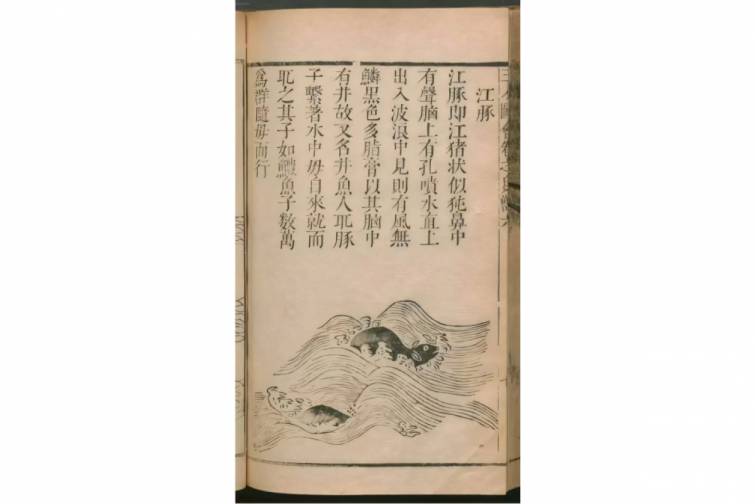 三才圖會
江豚
江豚即江猪状似㹠鼻中
有聲腦上有孔噴水直上
出入波浪中見則有風無
鱗黒色多脂膏以其腦中
有井故又名井魚人耴豚
子繫著水中母自來就而
耴之其子如鱧魚子数萬
爲群隨母而行